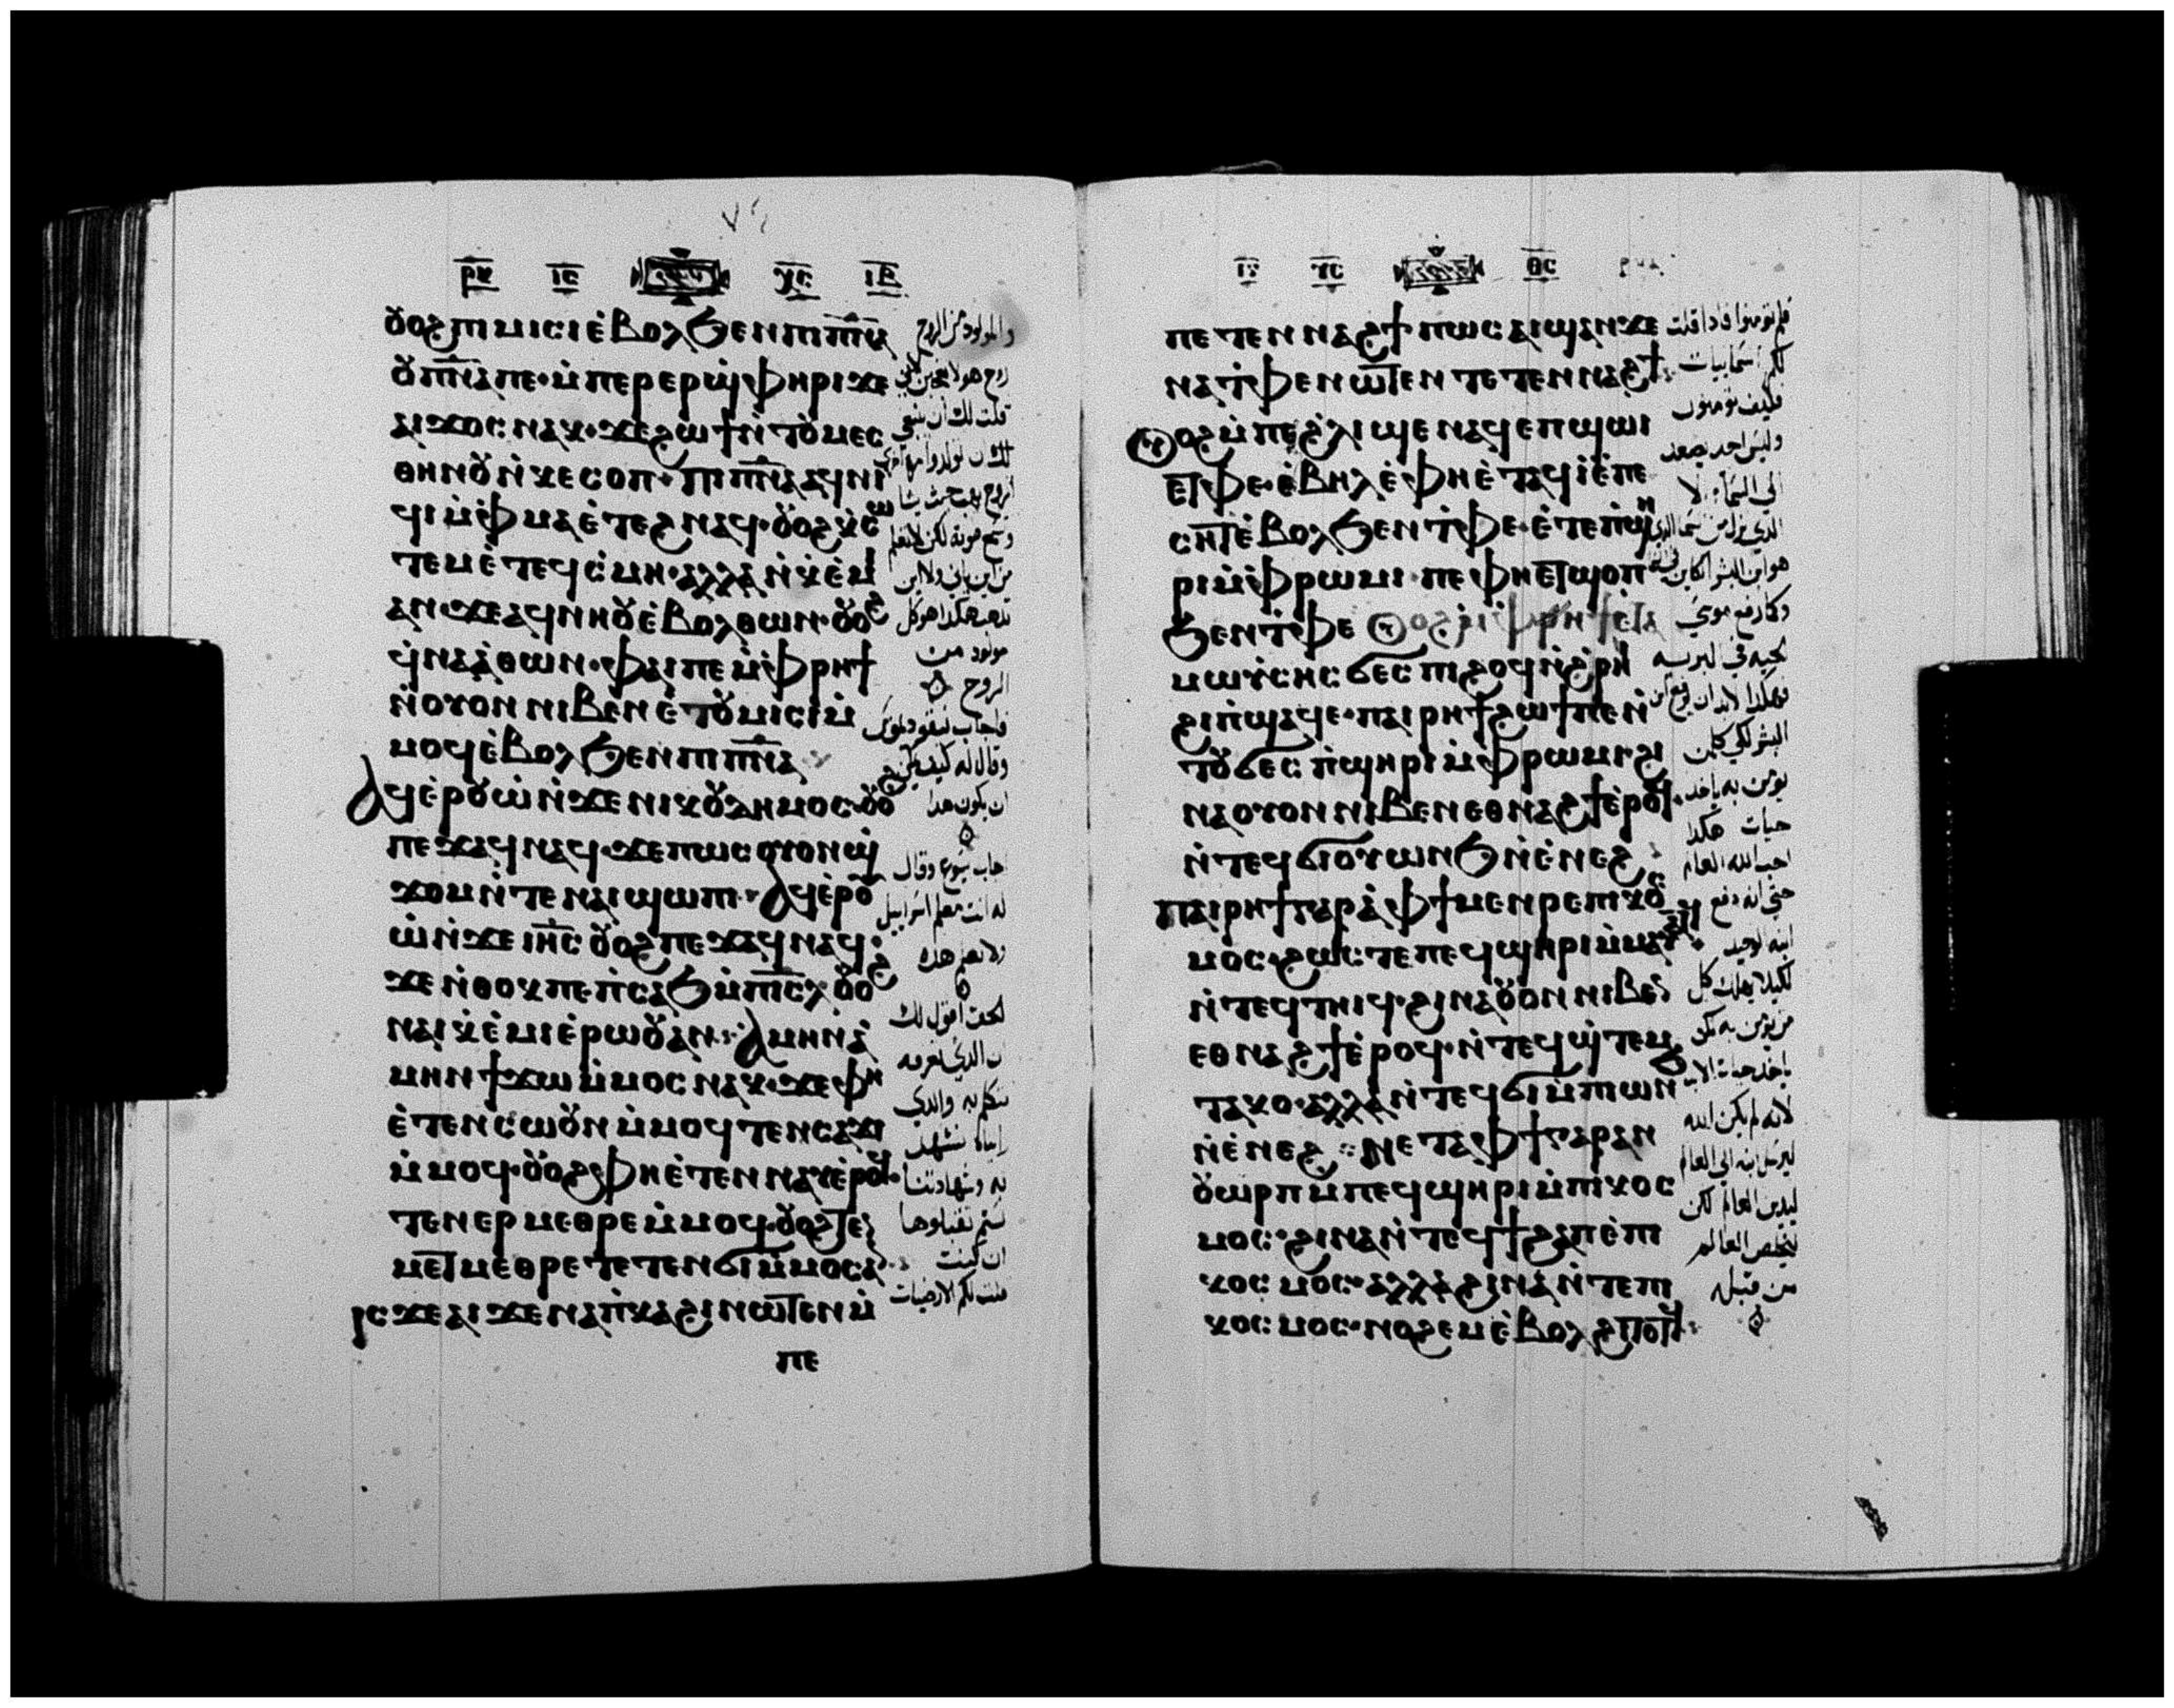 ⲣⲕ ⲓⲥ ⲭⲥ ⲓⲃ
ⲟⲩⲟϩ ⲡⲓⲙⲓⲥⲓ ⲉ̀ⲃⲟⲗ ϧⲉⲛ ⲡⲓⲡ̅ⲛ̅ⲁ̅
ⲟⲩⲡ̅ⲛ̅ⲁ̅ ⲡⲉ· ⲙ̀ⲡⲉⲣⲉⲣϣ̀ⲫⲏⲣⲓ ϫⲉ
ⲁⲓϫⲟⲥ ⲛⲁⲕ· ϫⲉ ϩⲱϯ ⲛ̀ⲧⲟⲩⲙⲉⲥ
ⲑⲏⲛⲟⲩ ⲛ̀ⲕⲉⲥⲟⲡ· ⲡⲓⲡ̅ⲛ̅ⲁ̅ ⲁϥⲛⲓ
ϥⲓ ⲙ̀ⲫ̀ⲙⲁ ⲉ̀ⲧⲉϩⲛⲁϥ· ⲟⲩⲟϩ ⲕ̀ⲥⲱ
ⲧⲉⲙ ⲉ̀ⲧⲉϥⲥ̀ⲙⲏ· ⲁⲗⲗⲁ ⲛ̀ⲕ̀ⲉ̀ⲙⲓ
ⲁⲛ ϫⲉ ⲁϥⲛⲏⲟⲩ ⲉ̀ⲃⲟⲗ ⲑⲱⲛ· ⲟⲩⲟϩ
ϥ̀ⲛⲁⲁ̀ⲑⲱⲛ· ⲫⲁⲓ ⲡⲉ ⲙ̀ⲫ̀ⲣⲏϯ
ⲛ̀ⲟⲩⲟⲛ ⲛⲓⲃⲉⲛ ⲉ̀ⲧⲟⲩⲙⲓⲥⲓ ⲙ̀
ⲙⲟϥ ⲉ̀ⲃⲟⲗ ϧⲉⲛ ⲡⲓⲡ̅ⲛ̅ⲁ̅
ⲁϥⲉ̀ⲣⲟⲩⲱ̀ ⲛ̀ϫⲉ ⲛⲓⲕⲟⲩⲇⲏⲙⲟⲥ· ⲟⲩⲟϩ
ⲡⲉϫⲁϥ ⲛⲁϥ· ϫⲉ ⲡⲱⲥ ⲟⲩⲟⲛ ϣ̀
ϫⲟⲙ ⲛ̀ⲧⲉ ⲛⲁⲓ ϣⲱⲡⲓ· ⲁϥⲉ̀ⲣⲟⲩ
ⲱ̀ ⲛ̀ϫⲉ ⲓⲏ̅ⲥ̅ ⲟⲩⲟϩ ⲡⲉϫⲁϥ ⲛⲁϥ·
ϫⲉ ⲛ̀ⲑⲟⲕ ⲡⲉ ⲡ̀ⲥⲁϧ ⲙ̀ⲡⲓ̅ⲥ̅ⲗ̅ ⲟⲩⲟϩ
ⲛⲁⲓ ⲕ̀ⲉ̀ⲙⲓ ⲉ̀ⲣⲱⲟⲩ ⲁⲛ: ⲁⲙⲏⲛ ⲁ̀
ⲙⲏⲛ ϯϫⲱ ⲙ̀ⲙⲟⲥ ⲛⲁⲕ· ϫⲉ ⲫⲏ
ⲉ̀ⲧⲉⲛⲥ̀ⲱⲟⲩⲛ ⲙ̀ⲙⲟϥ ⲧⲉⲛⲥⲁϫⲓ
ⲙ̀ⲙⲟϥ· ⲟⲩⲟϩ ⲫⲏ ⲉ̀ⲧⲉⲛⲛⲁⲩ ⲉ̀ⲣⲟϥ·
ⲧⲉⲛⲉⲣⲙⲉⲑⲣⲉ ⲙ̀ⲙⲟϥ· ⲟⲩⲟϩ ⲧⲉⲛ
ⲙⲉⲧⲙⲉⲑⲣⲉ ⲧⲉⲧⲉⲛϭⲓ ⲙ̀ⲙⲟⲥ ⲁⲛ:
ⲓⲥϫⲉ ⲁⲓϫⲉ ⲛⲁⲡ̀ⲕⲁϩⲓ ⲛⲱⲧⲉⲛ ⲙ̀
ⲡⲉ
والمولود من الروح
روح هو لا تعجبن لاني
قلت لك ان ينبغي
لكن تولدوا مرة اخرى
الروح يهب حيث يشا
وتسمع صوته لكن لا تعلم
من اين ياتي ولا اين
يذهب هكذا هو كل
مولود من
الروح
فاجاب نيقوديموس
وقال له كيف يمكن
ان يكون هذا
اجاب يسوع وقال
له انت معلم اسراييل
ولا تعلم هذه
الحق اقول لك
ان الذي نعرفه
نتكلم به والذي
رايناه نشهد
به وشهادتنا
لستم تقبلوها
ان كنت
قلت لكم الارضيات
ⲓⲥ ⲭⲥ ⲑⲥ
ⲡⲉⲧⲉⲛⲛⲁϩϯ ⲡⲱⲥ ⲁⲓϣⲁⲛϫⲉ
ⲛⲁⲧ̀ⲫⲉ ⲛⲱⲧⲉⲛ ⲧⲉⲧⲉⲛⲛⲁϩϯ:
ⲟⲩⲟϩ ⲙ̀ⲡⲉϩ̀ⲗⲓ ϣⲉ ⲛⲁϥ ⲉⲡϣⲱⲓ
ⲉⲧ̀ⲫⲉ· ⲉ̀ⲃⲏⲗ ⲉ̀ⲫⲏ ⲉ̀ⲧⲁϥⲓ̀ ⲉ̀ⲡⲉ
ⲥⲏⲧ ⲉ̀ⲃⲟⲗ ϧⲉⲛ ⲧ̀ⲫⲉ· ⲉ̀ⲧⲉ ⲡ̀ϣⲏ
ⲣⲓ ⲙ̀ⲫ̀ⲣⲱⲙⲓ ⲡⲉ ⲫⲏ ⲉⲧϣⲟⲡ
ϧⲉⲛ ⲧ̀ⲫⲉ ⲟⲩⲟϩ ⲙ̀ⲫ̀ⲣⲏϯ ⲉⲧⲁ
ⲙⲱⲩ̀ⲥⲏⲥ ϭⲉⲥ ⲡⲓϩⲟϥ ⲛ̀ϩ̀ⲣⲏⲓ
ϩⲓ ⲡ̀ϣⲁϥⲉ· ⲡⲁⲓⲣⲏϯ ϩⲱϯ ⲡⲉ ⲛ̀
ⲧⲟⲩϭⲉⲥ ⲡ̀ϣⲏⲣⲓ ⲙ̀ⲫ̀ⲣⲱⲙⲓ· ϩⲓ
ⲛⲁ ⲟⲩⲟⲛ ⲛⲓⲃⲉⲛ ⲉⲑⲛⲁϩϯ ⲉ̀ⲣⲟϥ·
ⲛ̀ⲧⲉϥϭⲓ ⲟⲩⲱⲛϧ ⲛ̀ⲉ̀ⲛⲉϩ:
ⲡⲁⲓⲣⲏϯ ⲅⲁⲣ ⲁ̀ ⲫϯ ⲙⲉⲛⲣⲉ ⲡⲓⲕⲟⲥ
ⲙⲟⲥ· ϩⲱⲥⲧⲉ ⲡⲉϥϣⲏⲣⲓ ⲙ̀ⲙⲁⲩⲁⲧϥ
ⲛ̀ⲧⲉϥⲧⲏⲓϥ· ϩⲓⲛⲁ ⲟⲩⲟⲛ ⲛⲓⲃⲉⲛ
ⲉⲑⲛⲁϩϯ ⲉ̀ⲣⲟϥ· ⲛ̀ⲧⲉϥϣ̀ⲧⲉⲙ
ⲧⲁⲕⲟ· ⲁⲗⲗⲁ ⲛ̀ⲧⲉϥϭⲓ ⲙ̀ⲡⲓⲱⲛϧ
ⲛ̀ⲉ̀ⲛⲉϩ: ⲛⲉⲧⲁ ⲫϯ ⲅⲁⲣ ⲁⲛ
ⲟⲩⲱⲣⲡ ⲙⲡⲉϥϣⲏⲣⲓ ⲙ̀ⲡⲓⲕⲟⲥ
ⲙⲟⲥ· ϩⲓⲛⲁ ⲛ̀ⲧⲉϥϯϩⲁⲡ ⲉ̀ⲡⲓ
ⲕⲟⲥⲙⲟⲥ· ⲁⲗⲗⲁ ϩⲓⲛⲁ ⲛ̀ⲧⲉ ⲡⲓ
ⲕⲟⲥⲙⲟⲥ· ⲛⲟϩⲉⲙ ⲉ̀ⲃⲟⲗ ϩⲓⲧⲟⲧϥ:
فلم تومنوا فاذا قلت
لكم السماييات
فكيف تومنون
وليس احد يصعد
الي السماء الا
الذي نزل من السما الذي
هو ابن البشر الكاين في السما
وكما رفع موسي
الحيه في البريه
فهكذا لابد ان يرفع ابن
البشر لكي كل من
يومن به ياخذ
حيات هكذا
احب الله العالم
حتي انه دفع
ابنه الوحيد
لكيلا يهلك كل
من يومن به لكن
ياخذ حيات الابد
لانه لم يكن الله
ليرسل ابنه الي العالم
ليدين العالم لكن
ليخلص العالم
من قبله